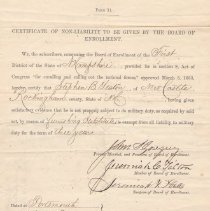 FORM 31.
CERTIFICATE OF NON-LIABILITY TO BE GIVEN BY THE BOARD OF
ENROLLMENT.
We, the subscribers, composing the Board of Enrollment of the First
District of the State of N Hampshire provided for in section 8, Act of
Congress "for enrolling and calling out the national forces," approved March 3, 1863,
hereby certify that Stephen B. of New Castle
Rockingham county, State of NH, having given satisfactory
evidence that he is not properly subject to do military duty, as required by said
act, by reason of furnishing Substitute is exempt from all liability to military
duty for the term of three years
John
Provost Marshal, and President of Board of Enrollment.
Jeremiah C. Tilton
Member of Board of Enrollment.
Jeremiah F.
Surgeon of Board of Enrollment.
Dated at Portsmouth